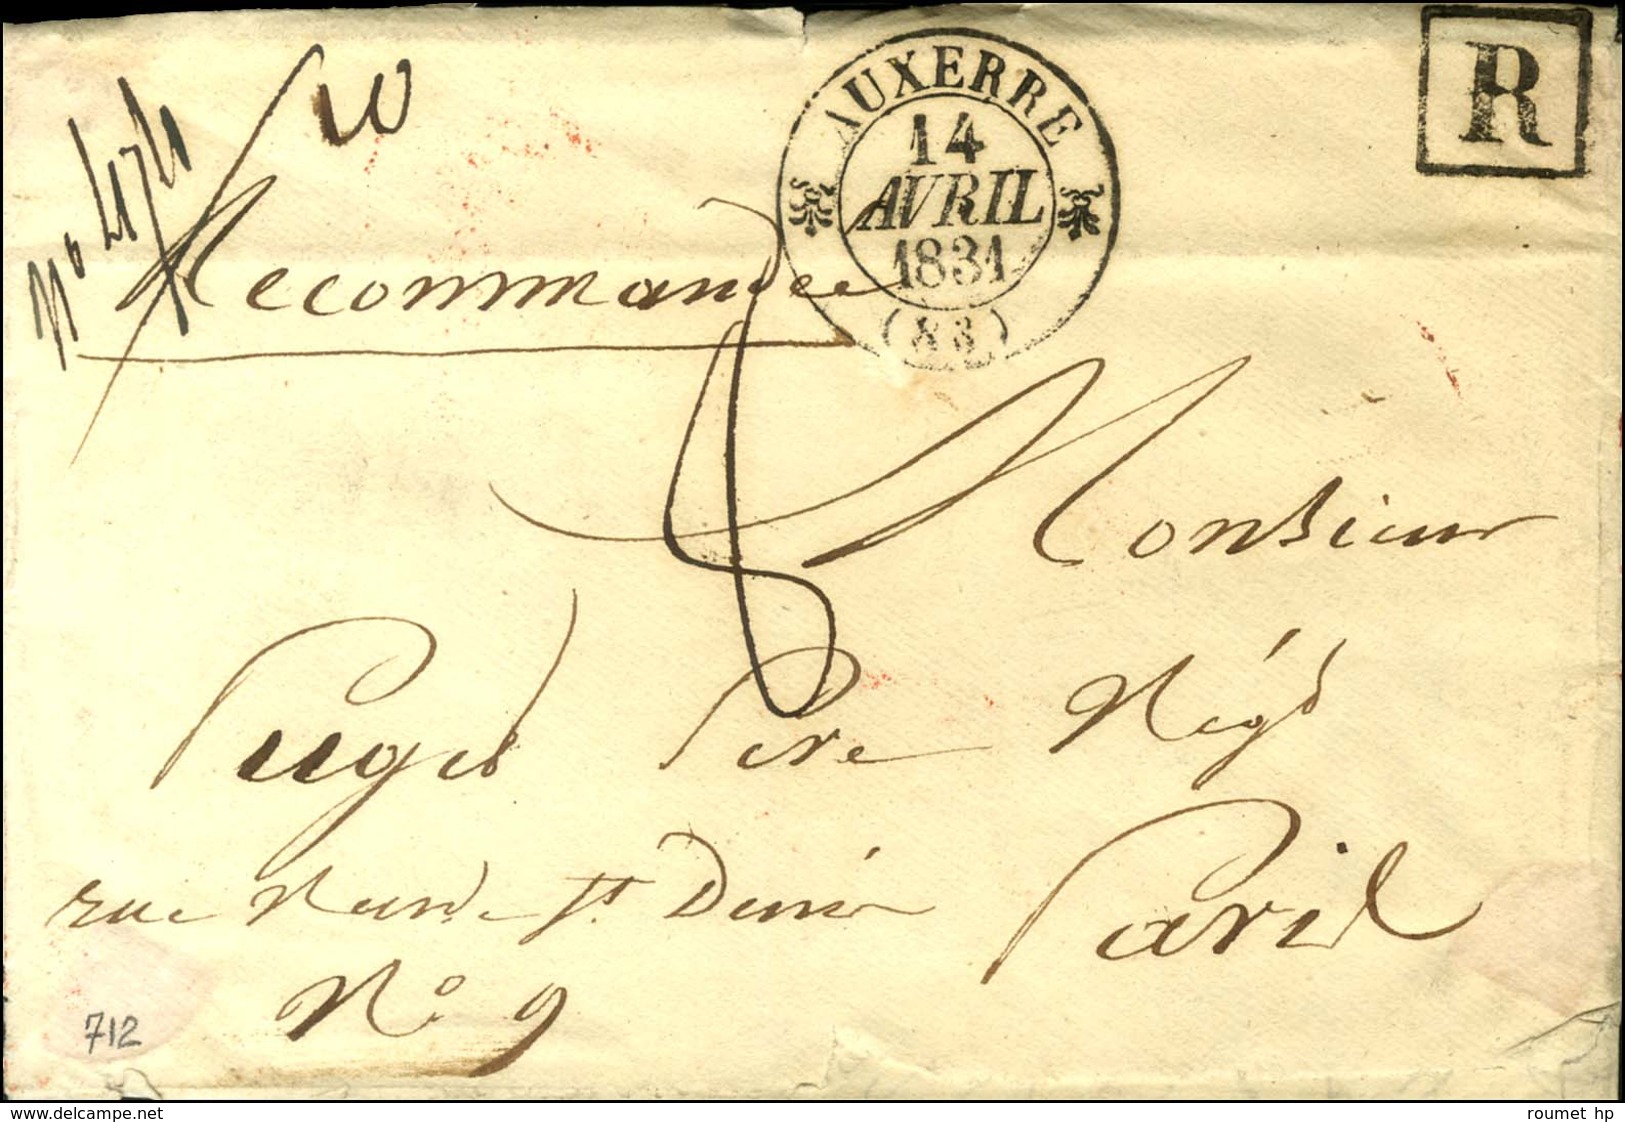 R
AUXERRE
14
AVRIL
1831
(83)
10
N° 474
Recommandée
8
Monsieur
Puget Père Négt
rue Neuve St Denis Paris
N° 9
712
www.delcampe.net
roumet hp